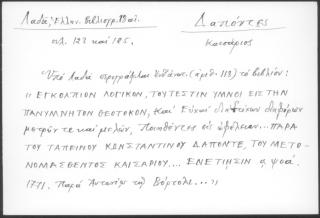 Λαδᾶ, Ἑλλην. Βιβλιογρ. 18 αἰ. Δαπόντες
σελ. 123 καί 185. Καισάριος
Ὑπό Λαδᾶ περιγράφεται (ἀριθ. 113) τό βιβλίον:
"ΕΓΚΟΛΠΙΟΝ ΛΟΓΙΚΟΝ, ΤΟΥΤΕΣΤΙΝ ΥΜΝΟΙ ΕΙΣ ΤΗΝ
ΠΑΝΥΜΝΗΤΟΝ ΘΕΟΤΟΚΟΝ, Καί Εὐχαί διαφόρων
μετρῶν τε καί μελῶν, Ποιηθέντες εἰς ὠφέλειαν... ΠΑΡΑ
ΤΟΥ ΤΑΠΕΙΝΟΥ ΚΩΝΣΤΑΝΤΙΝΟΥ ΔΑΠΟΝΤΕ, ΤΟΥ ΜΕΤΟ-
ΝΟΜΑΣΘΕΝΤΟΣ ΚΑΙΣΑΡΙΟΥ... ΕΝΕΤΙΗΣΙΝ αψοα΄.
1771. Παρά Ἀντωνίῳ τῷ Βόρτολι..."